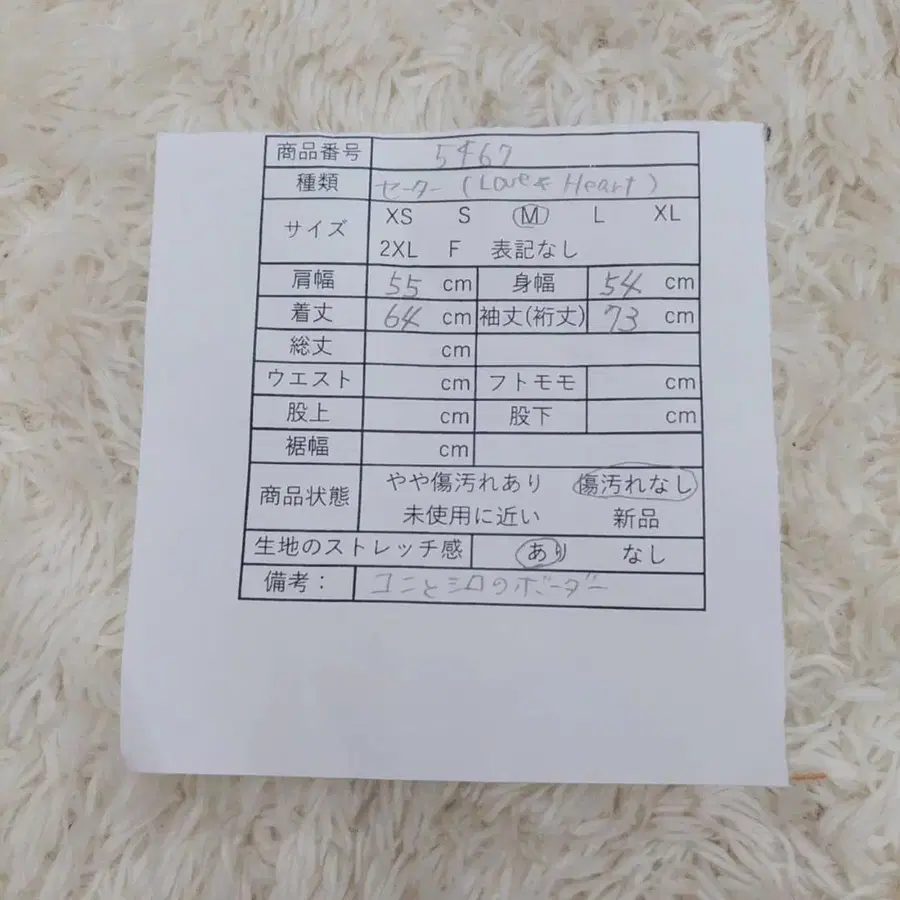 商品番号 5467
種類 セーター (Love & Heart)
サイズ XS S M L XL
2XL F 表記なし
肩幅 55 cm 身幅 54 cm
着丈 64 cm 袖丈(裄丈) 73 cm
総丈 cm
ウエスト cm フトモモ cm
股上 cm 股下 cm
裾幅 cm
商品状態 やや傷汚れあり 傷汚れなし
未使用に近い 新品
生地のストレッチ感 あり なし
備考： コンとシロのボーダー